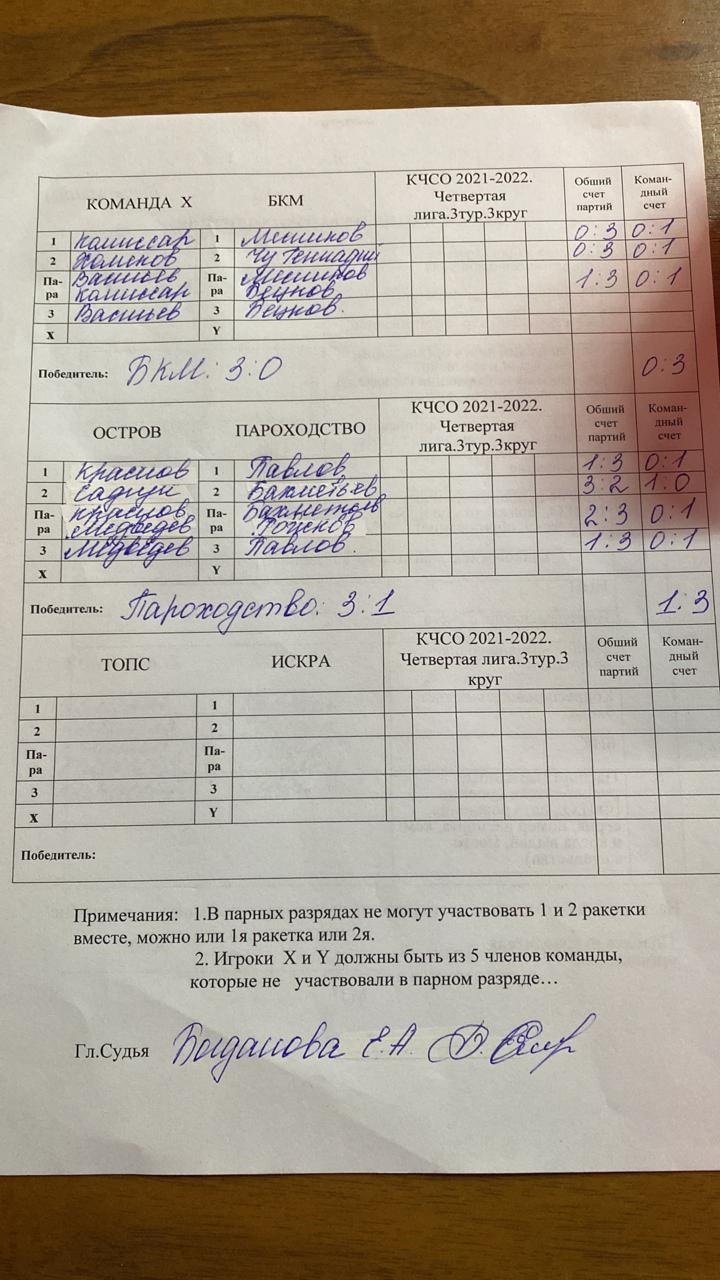 КОМАНДА X БКМ КЧСО 2021-2022. Четвертая лига.3тур.3круг Общий счет партий Коман-дный счет
1 Комиссар 1 Мешиков 0:3 0:1
2 Хоменов 2 Чу Геннадий 0:3 0:1
Па-ра Васильев Комиссар Па-ра Мешиков Бецнов 1:3 0:1
3 Васильев 3 Бецнов.
X Y
Победитель: БКМ: 3:0 0:3
ОСТРОВ ПАРОХОДСТВО КЧСО 2021-2022. Четвертая лига.3тур.3круг Общий счет партий Коман-дный счет
1 Краснов 1 Павлов 1:3 0:1
2 Садчук 2 Бахметьев 3:2 1:0
Па-ра Краснов Медведев Па-ра Бахметьев 2:3 0:1
3 Медведев 3 Павлов. 1:3 0:1
X Y
Победитель: Пароходство: 3:1 1:3
ТОПС ИСКРА КЧСО 2021-2022. Четвертая лига.3тур.3 круг Общий счет партий Коман-дный счет
1 1
2 2
Па-ра Па-ра
3 3
X Y
Победитель:
Примечания: 1.В парных разрядах не могут участвовать 1 и 2 ракетки
вместе, можно или 1я ракетка или 2я.
2. Игроки X и Y должны быть из 5 членов команды,
которые не участвовали в парном разряде…
Гл.Судья Богданова Е.А.